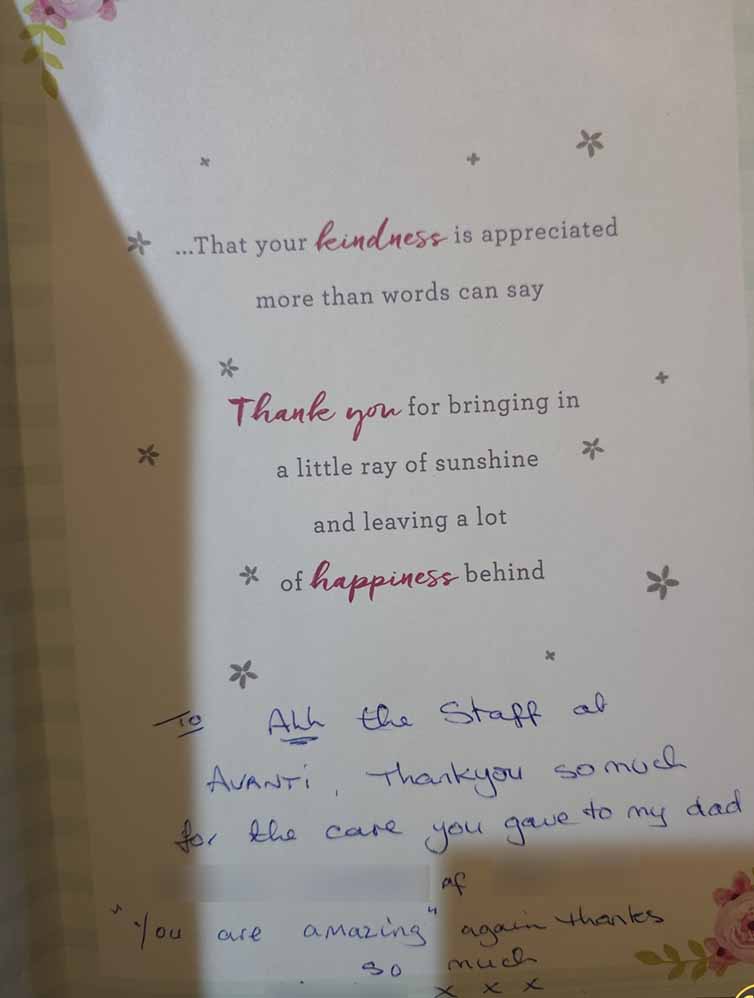 ...That your kindness is appreciated
more than words can say
Thank you for bringing in
a little ray of sunshine
and leaving a lot
of happiness behind
To All the Staff at
AVANTI, Thankyou so much
for the care you gave to my dad
"You are amazing" again thanks
so much
x x x